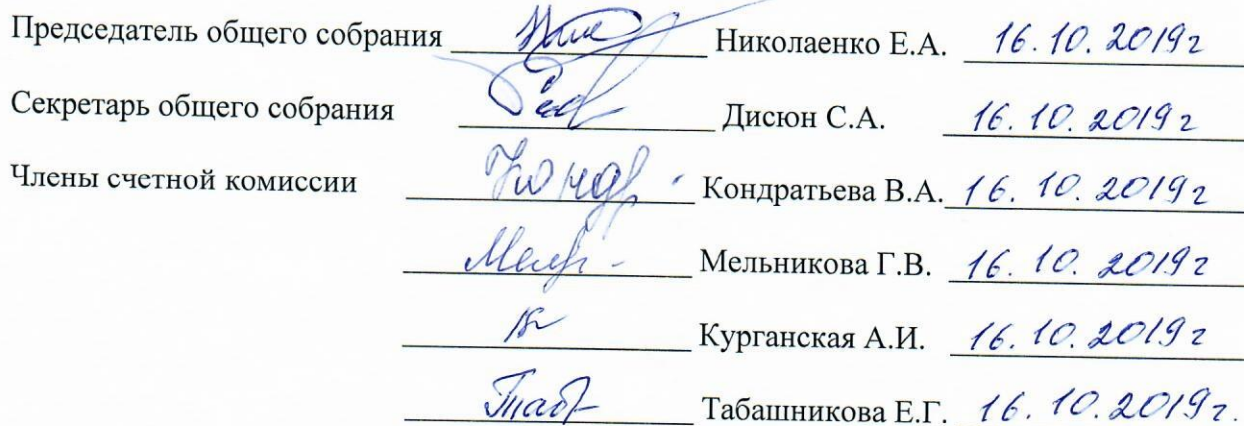 Председатель общего собрания Николаенко Е.А. 16.10.2019г
Секретарь общего собрания Дисюн С.А. 16.10.2019г
Члены счетной комиссии Кондратьева В.А. 16.10.2019г
Мельникова Г.В. 16.10.2019г
Курганская А.И. 16.10.2019г
Табашникова Е.Г. 16.10.2019г.